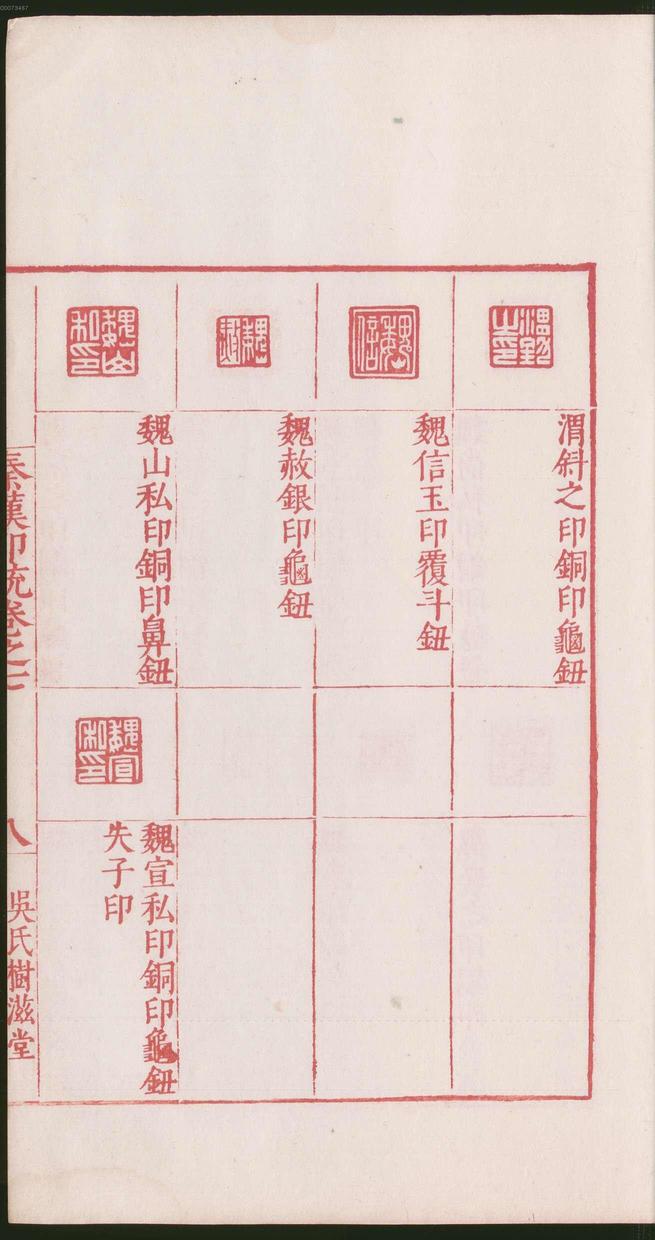 00073487
渭斜之印銅印龜鈕
魏信玉印覆斗鈕
魏赦銀印龜鈕
魏山私印銅印鼻鈕
魏宣私印銅印龜鈕
失子印
秦漢印統卷之七
八
吳氏樹滋堂
魏信
魏山私印
魏宣私印